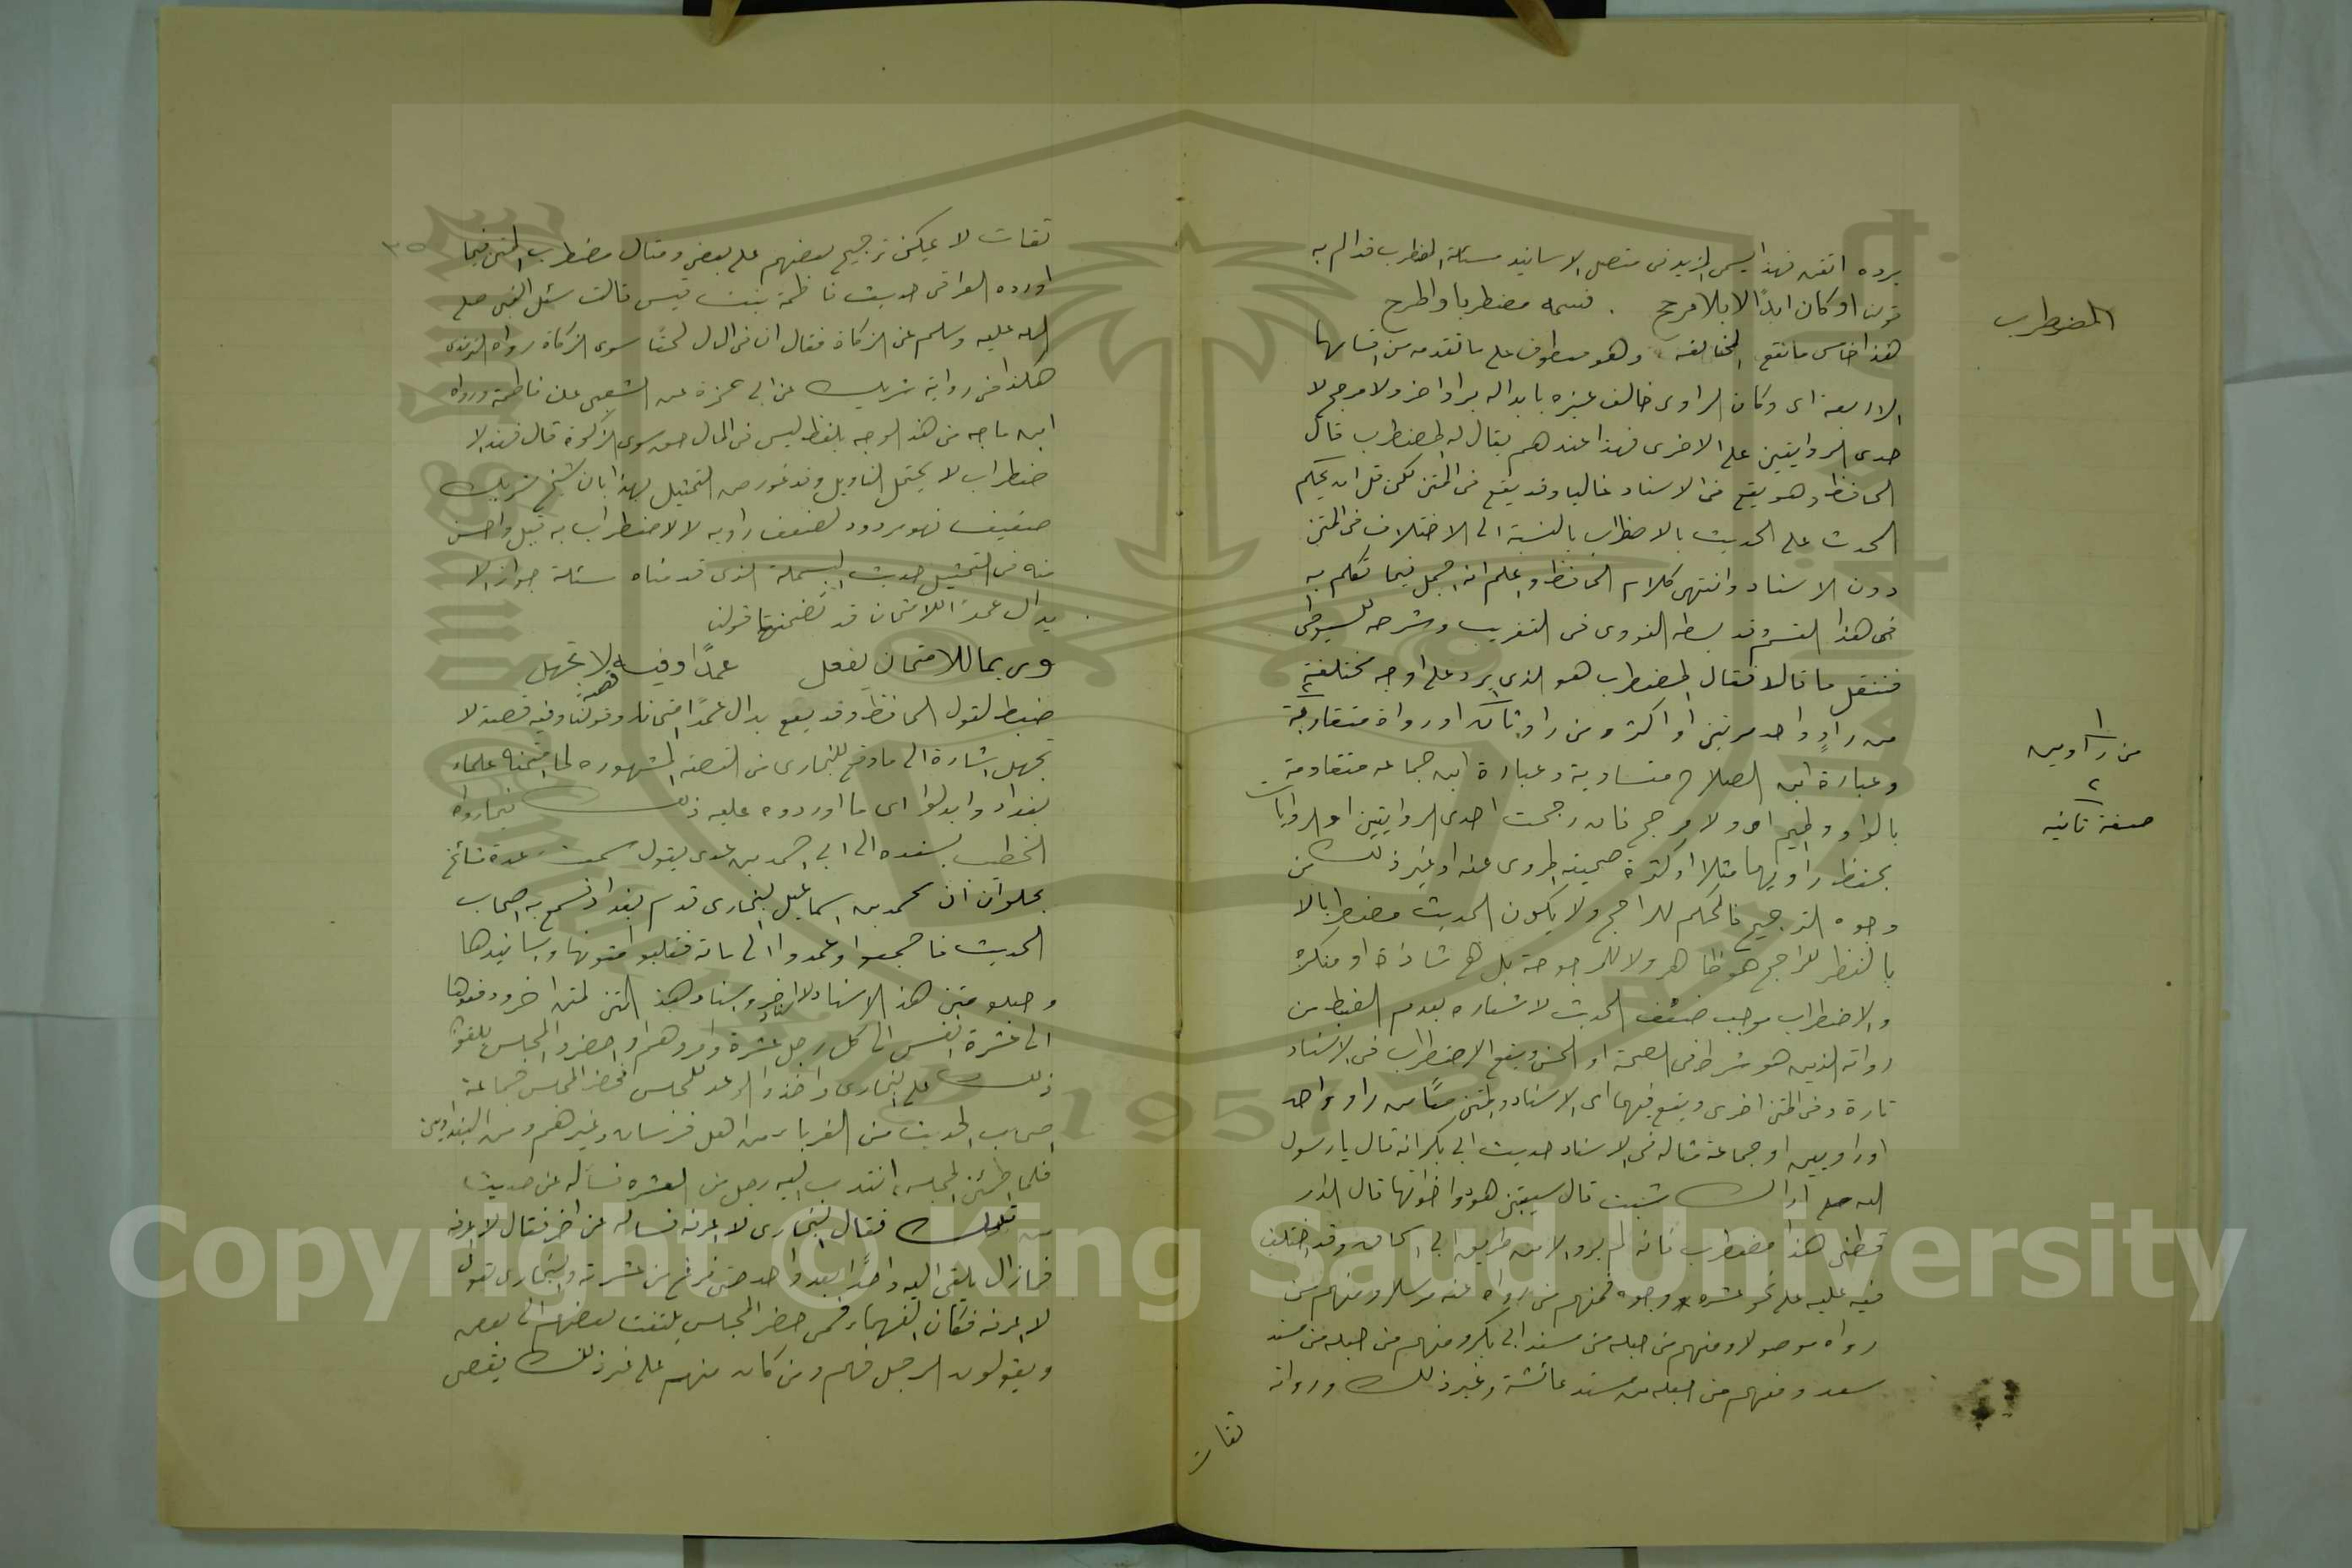 المضطرب
يرده اتقن فهذا يسمى المزيد في متصل الاسانيد مسئلة المضطرب قد الم به
قولنا او كان ابدالا بلا مرجح . فسمه مضطربا واطرح
هذا خامس ما تقع المخالفة وهو معطوف على ما تقدمه من اقسامها
الاربعة اى وكان الراوى خالف غيره بابداله براو اخر ولا مرجح لا
حدى الروايتين على الاخرى فهذا عندهم يقال له المضطرب قال
الحافظ وهو يقع فى الاسناد غالبا وقد يقع فى المتن لكن قل ان يحكم
المحدث على الحديث بالاضطراب بالنسبة الى الاختلاف فى المتن
دون الاسناد وانتهى كلام الحافظ واعلم انه اجمل فيما تكلم به
فى هذا القسم وقد بسطه النووى فى التقريب وشرحه للسيوطى
فننقل ما قالا فقال المضطرب هو الذى يرد على اوجه مختلفة
من راوٍ واحد مرتين او اكثر ومن راو ثان او رواة متقاربة
من راويين
صفة ثانيه
وعبارة ابن الصلاح متساوية وعبارة ابن جماعه متقاومة
بالواو والميم اى ولا مرجح فان رجحت احدى الروايتين او الروايات
بحفظ راويها مثلا او كثرة صحبته المروى عنه او غير ذلك من
وجوه الترجيح فالحكم للراجح ولا يكون الحديث مضطربا لا
بالنظر للراجح هو ظاهر ولا للمرجوحة بل هى شاذة او منكرة
والاضطراب موجب ضعف الحديث لاشعاره بعدم الضبط من
رواته الذين هو شرط فى الصحة او الحسن ويقع الاضطراب فى الاسناد
تارة وفى المتن اخرى ويقع فيهما اى الاسناد والمتن معًا من راو واحد
او راويين او جماعة مثاله فى الاسناد حديث ابى بكر انه قال يا رسول
الله صلع اراك شبت قال شيبتنى هود واخواتها قال الدار
قطنى هذا مضطرب فانه لم يرو الا من طريق ابى اسحاق وقد اختلف
فيه عليه على نحو عشره وجوه فمنهم من رواه عنه مرسلا ومنهم من
رواه موصولا ومنهم من جعله من مسند ابى بكر ومنهم من جعله من مسند
سعد ومنهم من جعله من مسند عائشة وغير ذلك ورواته
ثقات
ثقات لا يمكن ترجيح بعضهم على بعض ومثال مضطرب المتن فيما
٣٥
اورده العراقى حديث فاطمة بنت قيس قالت سئل النبى صلع
الله عليه وسلم عن الزكاة فقال ان فى المال لحقًا سوى الزكاة رواه الترمذى
هكذا فى رواية شريك عن ابى حمزة عن الشعبى عن فاطمة ورواه
ابن ماجه من هذا الوجه بلفظ ليس فى المال حق سوى الزكوة قال فهذا لا
ضطراب لا يحتمل التاويل وقد عورض التمثيل بهذا بان شيخ شريك
ضعيف فهو مردود لضعف راويه لا لاضطرابه قيل واحسن
منه فى التمثيل حديث البسملة الذى قدمناه مسئلة جواز الا
بدال عمدًا للامتحان قد تضمنها قولنا
وربما للامتحان يفعل عمدًا وفيه قصة لا تجهل
ضبط لقول الحافظ وقد يقع بدال عمدًا امتحانا وقولنا وفيه قصة لا
تجهل اشارة الى ما وقع للبخارى من القصة المشهوره لما امتحنه علماء
بغداد وابدلوا اى ما اوردوه عليه ذلك فيما رواه
الخطيب بسنده الى ابى احمد بن عدى يقول سمعت عدة مشائخ
يحكون ان محمد بن اسماعيل البخارى قدم بغداد فسمع به اصحاب
الحديث فاجتمعوا وعمدوا الى مائة فقلبوا متونها واسانيدها
وجعلو متن هذ الاسناد لاسناد اخر واسناد هذ المتن لمتن اخر ودفعوها
الى عشرة انفس الى كل رجل عشرة وامروهم اذا حضروا المجلس يلقوا
ذلك على البخارى واخذوا الوعد للمجلس فحضر المجلس جماعة
اصحاب الحديث من الغرباء من اهل خرسان وغيرهم ومن البغداديين
فلما اطمئن المجلس انتدب اليه رجل من العشره فساله عن حديث
من تلك فقال البخارى لا اعرفه فساله عن اخر فقال لا اعرفه
فما زال يلقى اليه واحدًا بعد واحد حتى فرغ من عشرته والبخارى يقول
لا اعرفه فكان الفهماء ممن حضر المجلس يلتفت بعضهم الى بعض
ويقولون الرجل فهم ومن كان منهم على غير ذلك يقضى
Copyright © King Saud University
1957